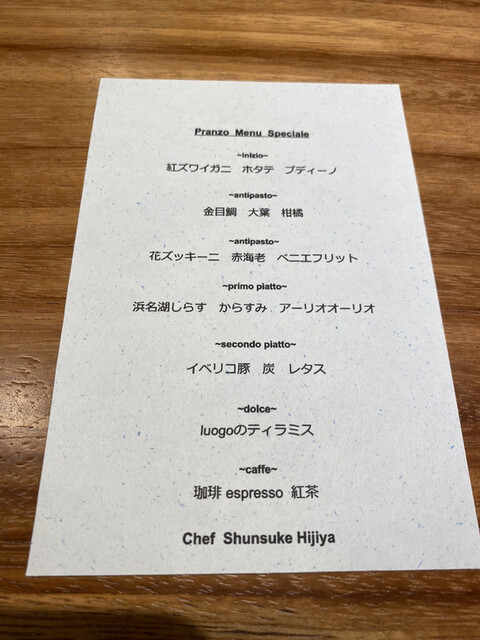 Pranzo Menu Speciale
~inizio~
紅ズワイガニ ホタテ ブディーノ
~antipasto~
金目鯛 大葉 柑橘
~antipasto~
花ズッキーニ 赤海老 ベニエフリット
~primo piatto~
浜名湖しらす からすみ アーリオオーリオ
~secondo piatto~
イベリコ豚 炭 レタス
~dolce~
luogoのティラミス
~caffe~
珈琲 espresso 紅茶
Chef Shunsuke Hijiya